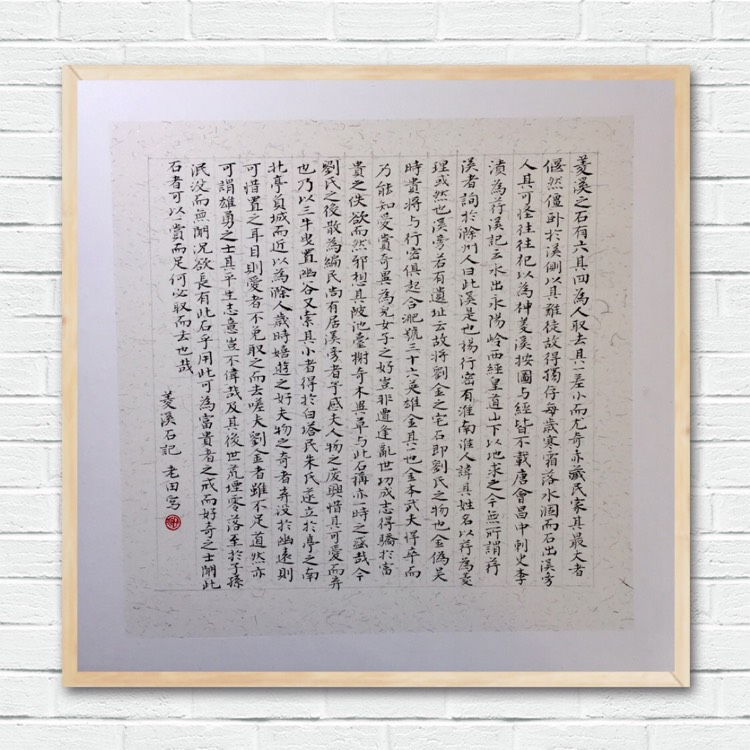 菱溪之石有六其四為人取去其一差小而尤奇亦藏民家其最大者
偃然僵卧於溪側以其難徙故得獨存每歲寒霜落水涸而石出溪旁
人其可怪往往祀以為神菱溪按圖与經皆不載唐會昌中刺史李
濆為荇溪記云水出永陽岭西經皇道山下以地求之今無所謂荇
溪者詢於滁州人曰此溪是也楊行密有淮南淮人諱其姓名以荇為菱
理或然也溪旁若有遺址云故将劉金之宅石即劉氏之物也金偽吳
時貴将与行密俱起合淝號三十六英雄金其一也金本武夫悍卒而
乃能知愛賞奇異為兒女子之好豈非遭逢亂世功成志得驕於富
貴之佚欲而然邪想其陂池臺榭奇木異草与此石稱亦一時之盛哉今
劉氏之後散為編民尚有居溪旁者予感夫人物之废興惜其可愛而弃
也乃以三牛曳置幽谷又索其小者得於白塔民朱氏遂立於亭之南
北亭負城而近以為滁人歲時嬉遊之好夫物之奇者弃没於幽遠則
可惜置之耳目則愛者不免取之而去嗟夫劉金者雖不足道然亦
可謂雄勇之士其平生志意豈不偉哉及其後世荒堙零落至於子孫
泯没而無聞况欲長有此石乎用此可為富貴者之戒而好奇之士聞此
石者可以一賞而足何必取而去也哉
菱溪石記 老田寫